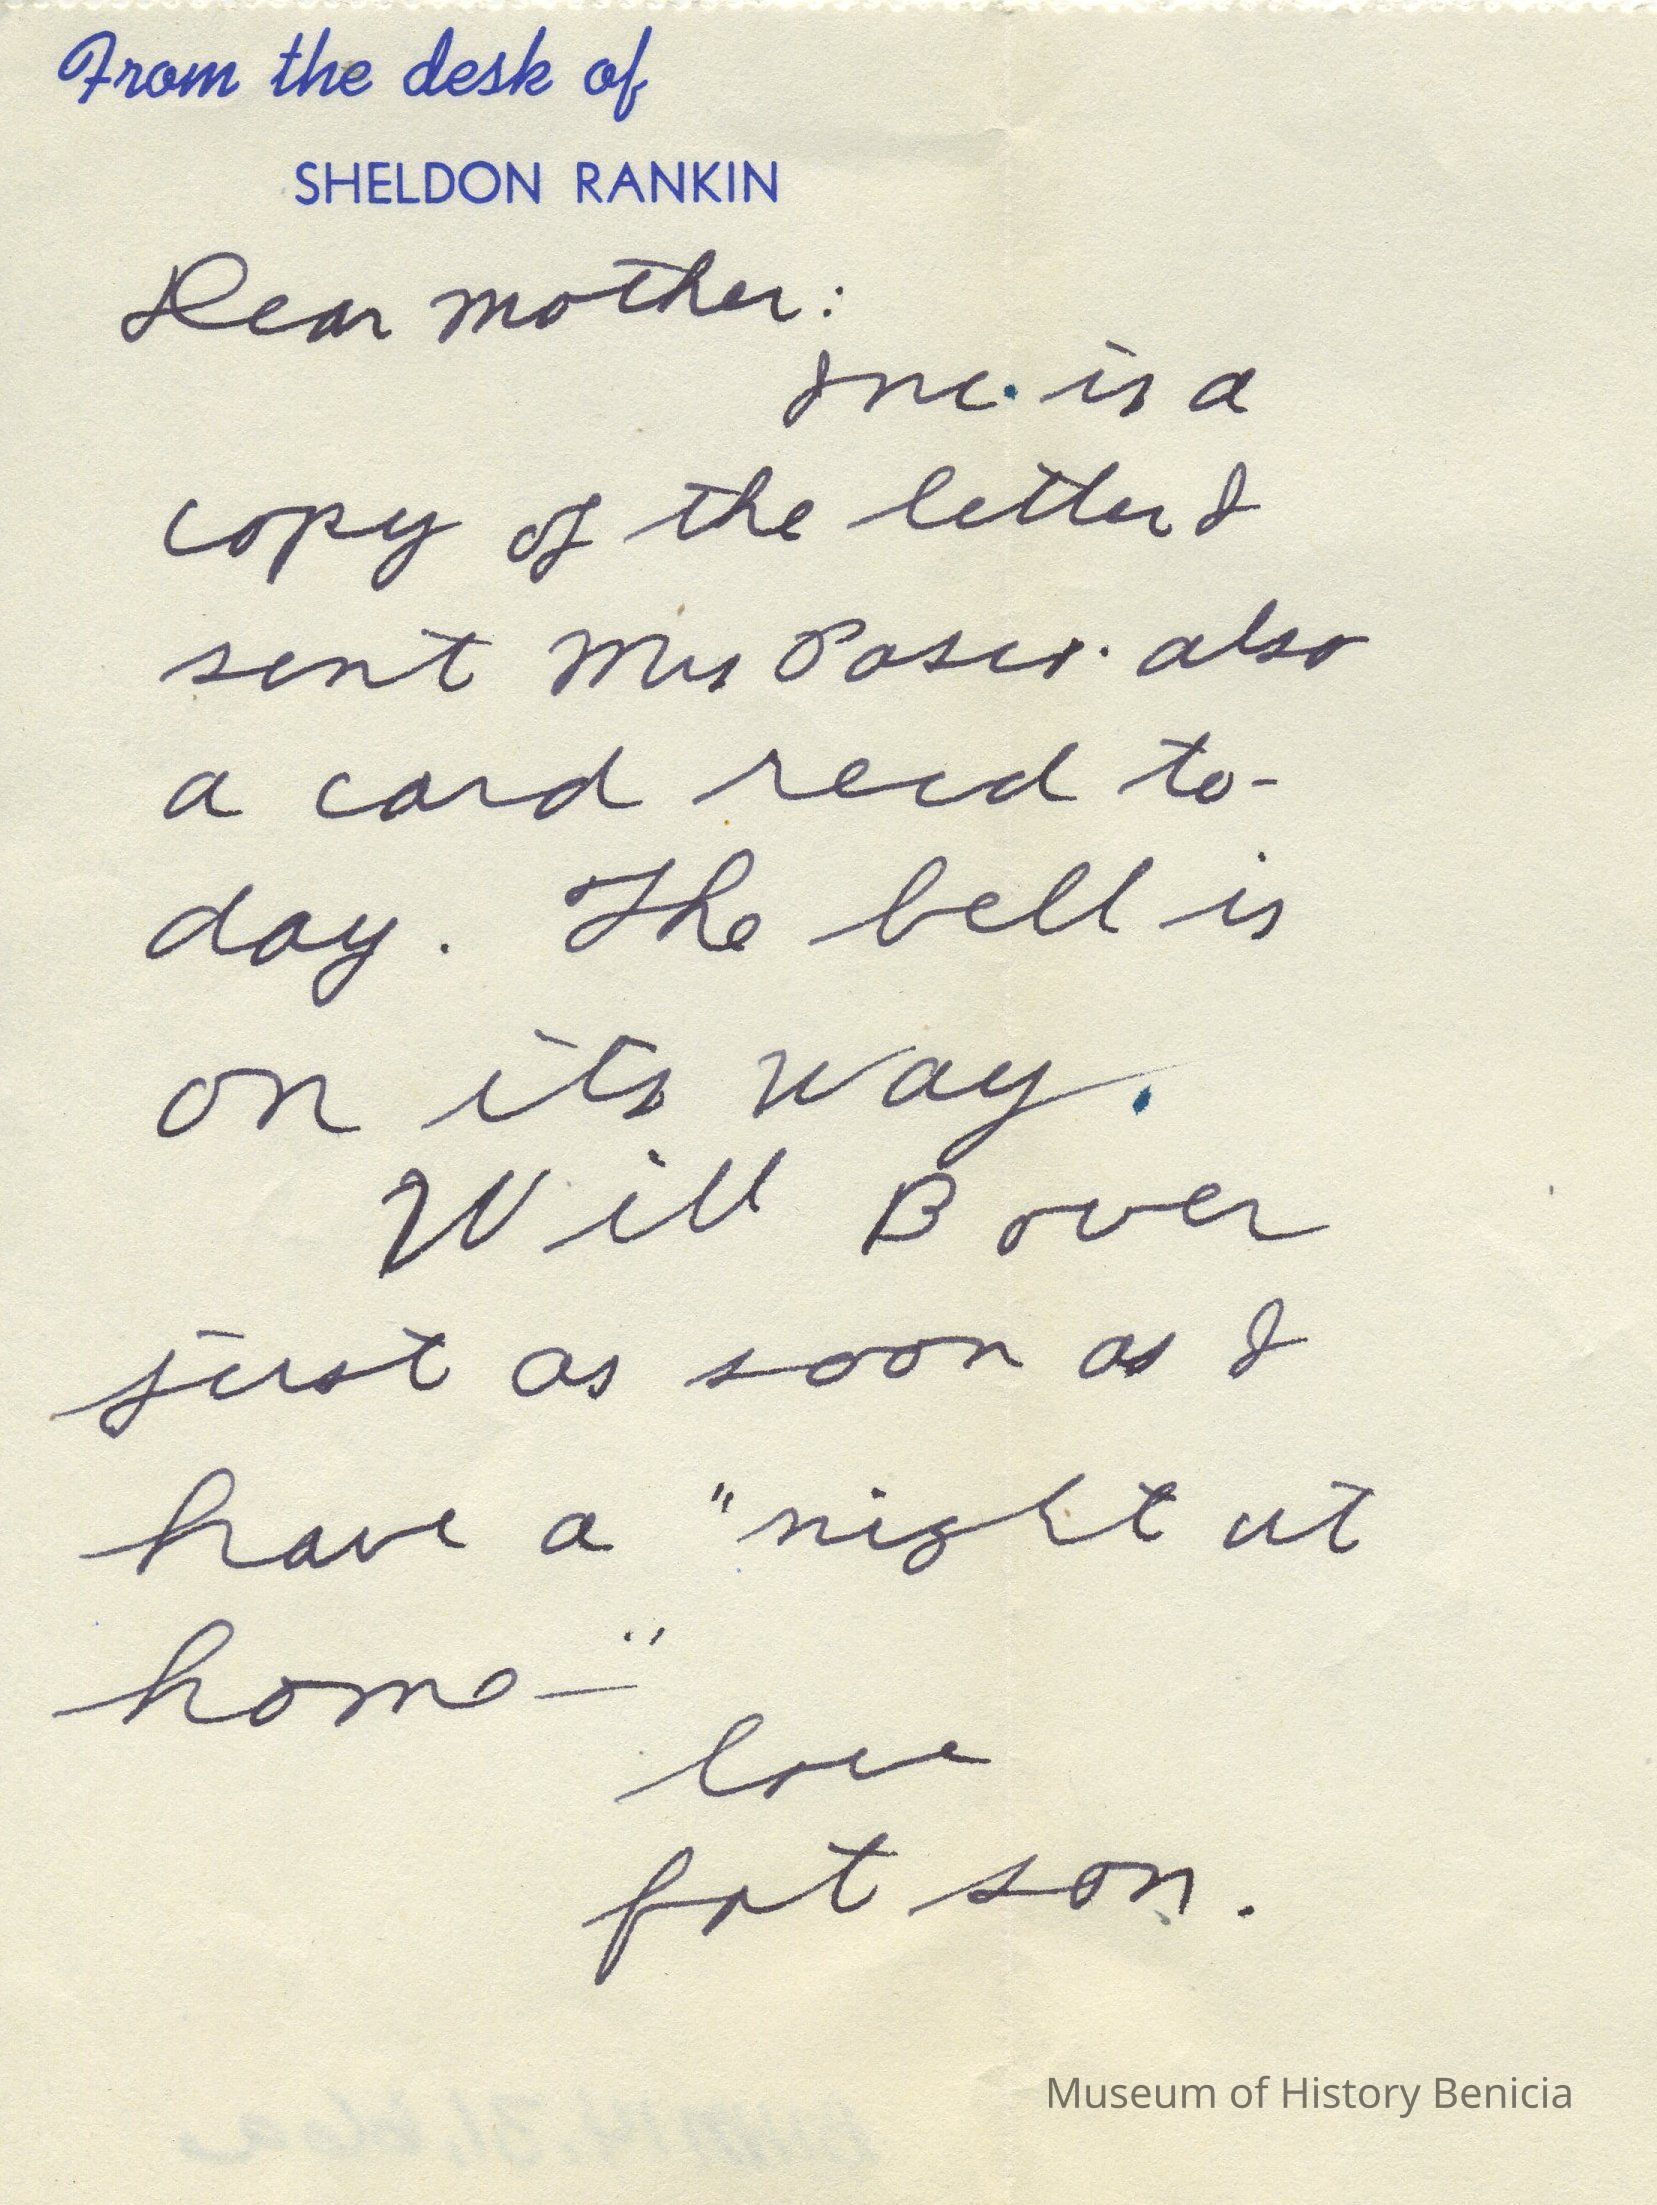 From the desk of
SHELDON RANKIN
Dear mother:
Inc. is a
copy of the letter I
sent Mrs Poser. also
a card recd to-
day. The bell is
on its way.
Will B over
just as soon as I
have a "night at
home—"
love
fat son.
Museum of History Benicia